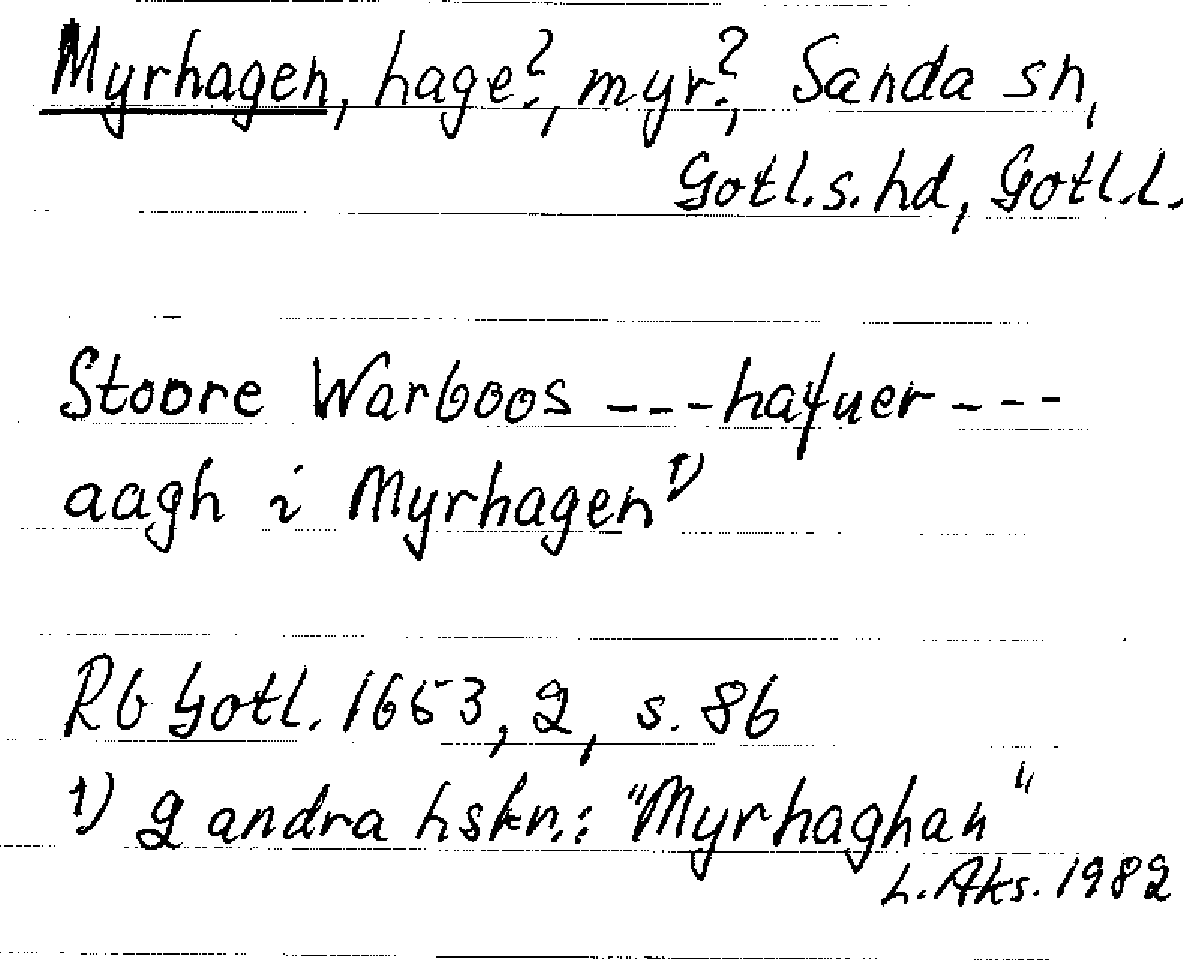 Myrhagen, hage?, myr?, Sanda sn,
Gotl.s.hd, Gotl.l.
Stoore Warboos --- hafuer ---
aagh i Myrhagen 1)
Rb Gotl. 1653, 2, s. 86
1) 2 andra hskr.: "Myrhaghan"
L. Aks. 1982